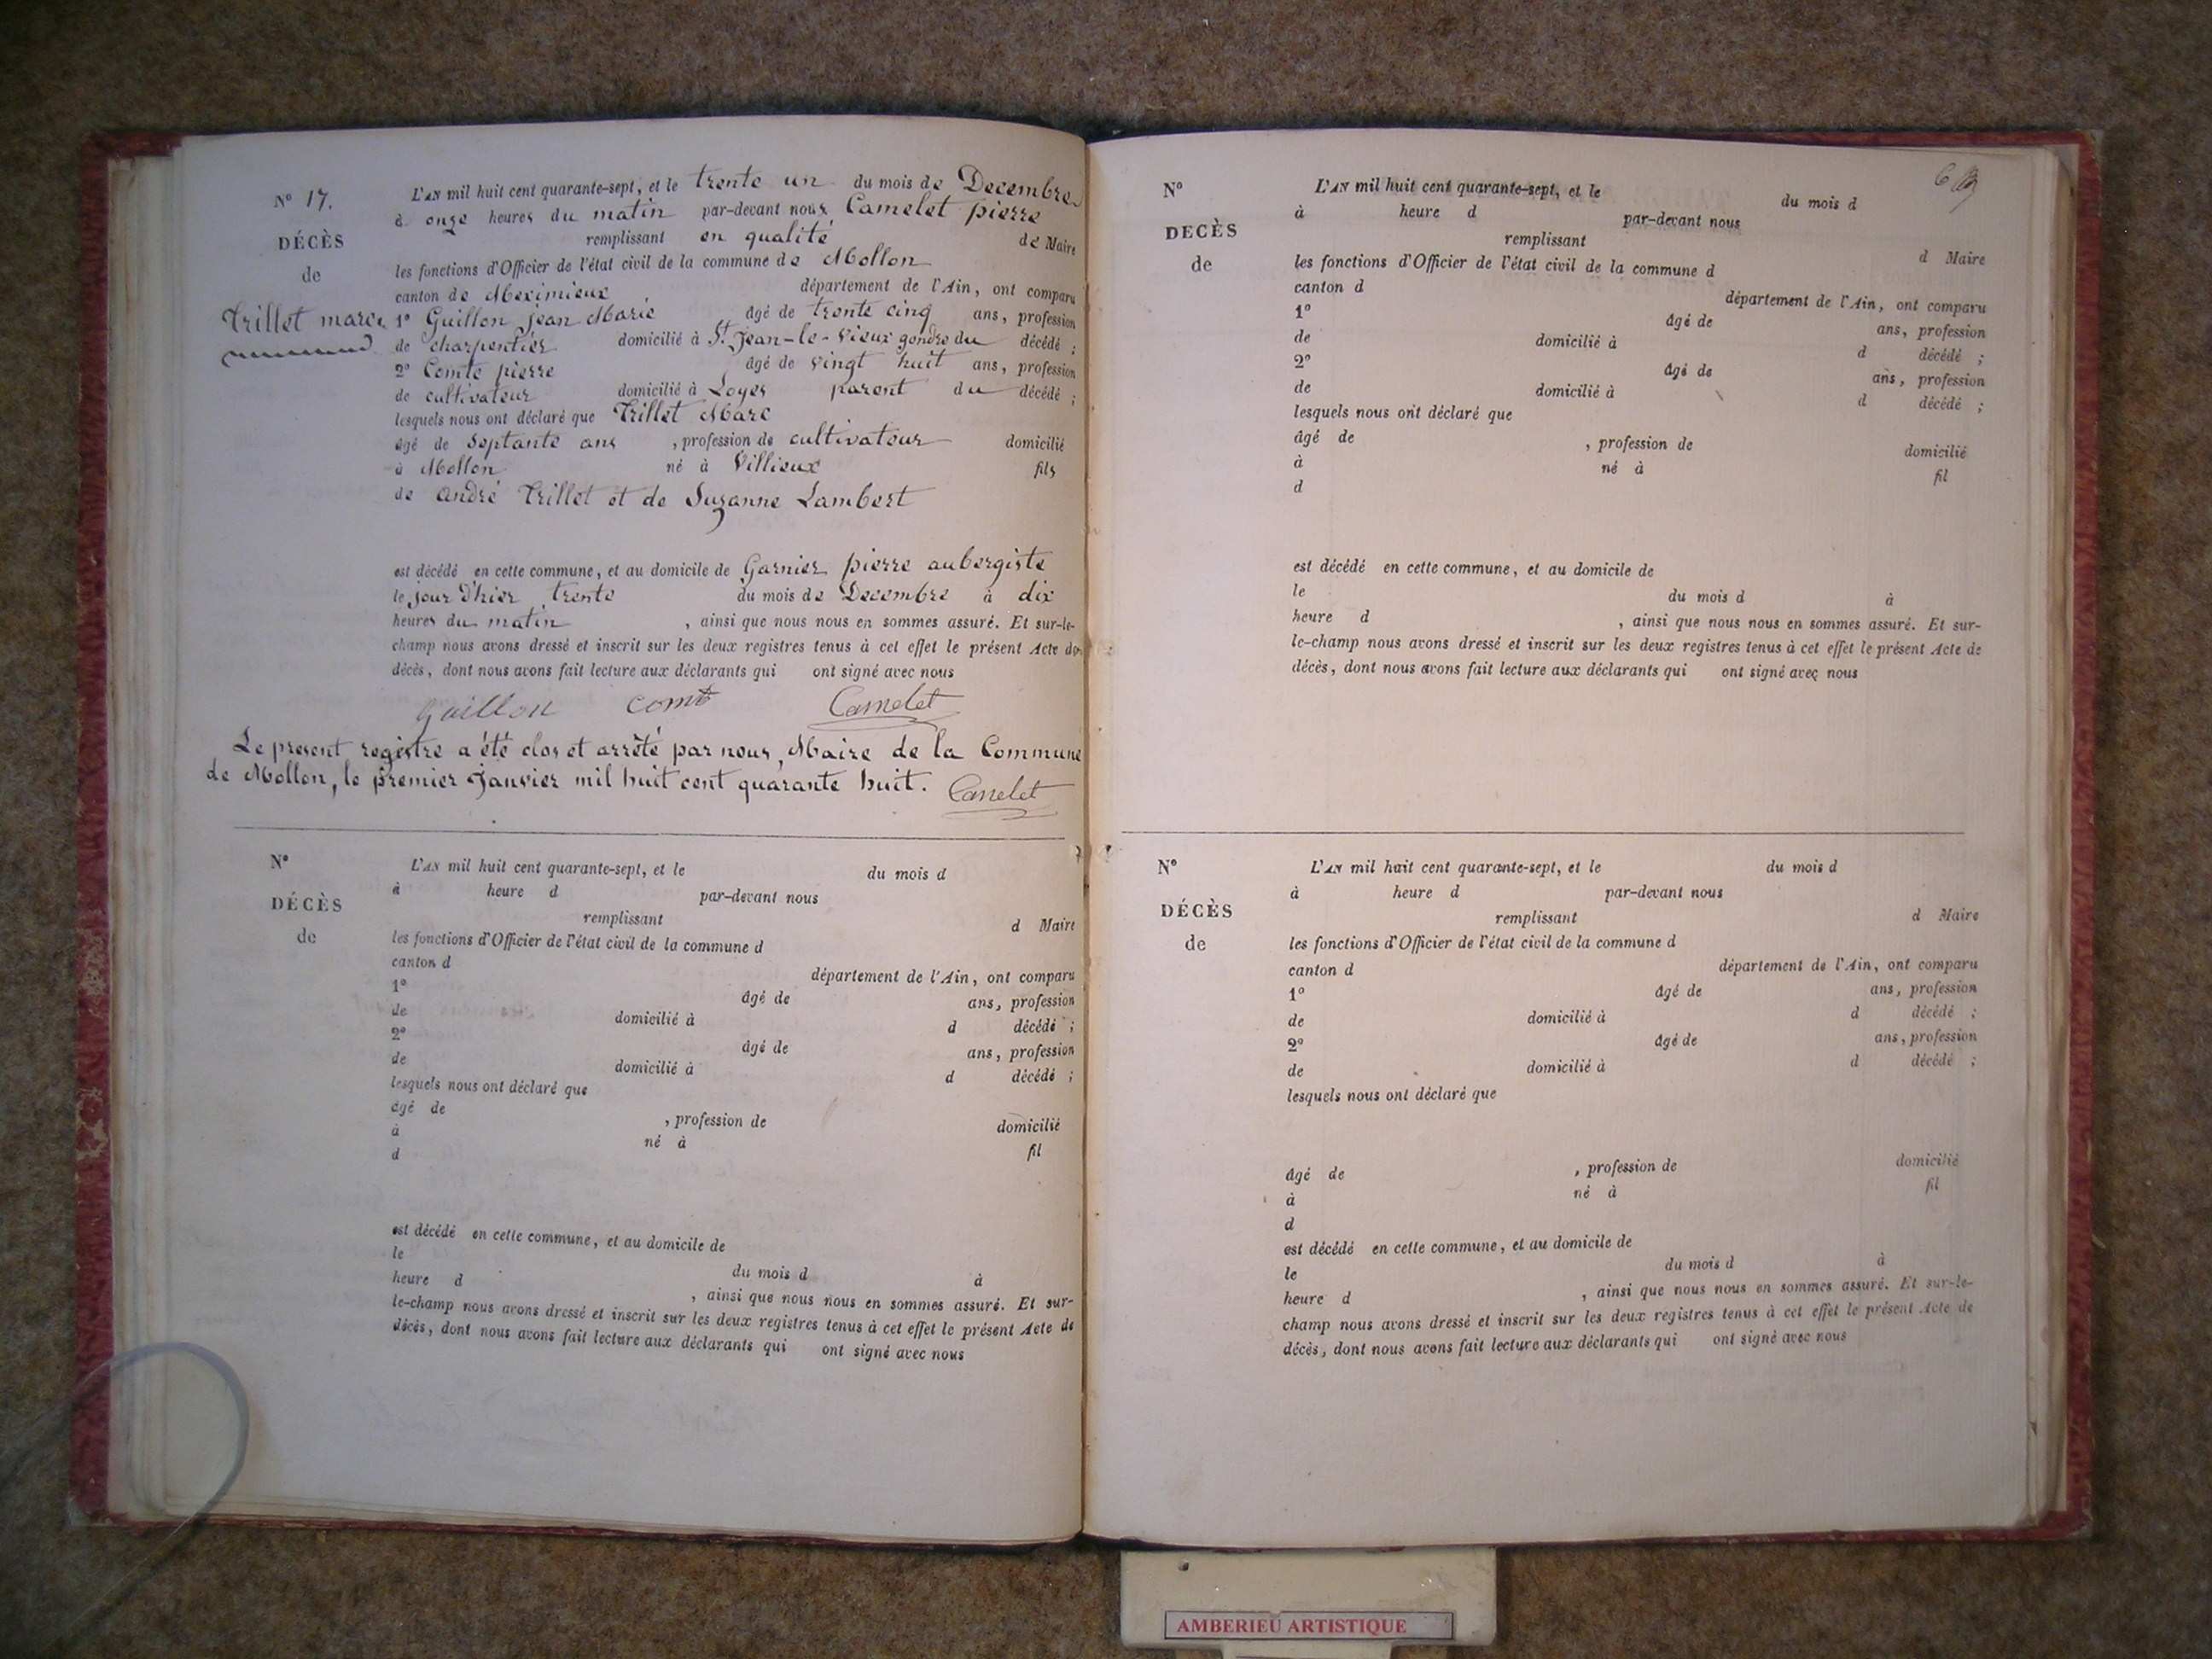 N° 17.
DÉCÈS
de
Trillet marc
L'AN mil huit cent quarante-sept, et le trente un du mois de Decembre
à onze heures du matin par-devant nous Camelet pierre
remplissant en qualité de Maire
les fonctions d'Officier de l'état civil de la commune de Mollon
canton de Meximieux département de l'Ain, ont comparu
1° Guillon jean Marie âgé de trente cinq ans, profession
de charpentier domicilié à St Jean-le-Vieux gendre du décédé ;
2° Comte pierre âgé de vingt huit ans, profession
de cultivateur domicilié à Loyes parent du décédé ;
lesquels nous ont déclaré que Trillet Marc
âgé de Septante ans , profession de cultivateur domicilié
à Mollon né à Villieux fils
de andré Trillet et de Suzanne Lambert
est décédé en cette commune, et au domicile de Garnier pierre aubergiste
le jour d'hier trente du mois de Decembre à dix
heures du matin , ainsi que nous nous en sommes assuré. Et sur-le-
champ nous avons dressé et inscrit sur les deux registres tenus à cet effet le présent Acte de
décès, dont nous avons fait lecture aux déclarants qui ont signé avec nous
Guillon Comte Camelet
Le present registre a été clos et arrêté par nous, Maire de la Commune
de Mollon, le premier Janvier mil huit cent quarante huit. Camelet
N°
DÉCÈS
de
L'AN mil huit cent quarante-sept, et le du mois d
à heure d par-devant nous
remplissant d Maire
les fonctions d'Officier de l'état civil de la commune d
canton d département de l'Ain, ont comparu
1° âgé de ans, profession
de domicilié à d décédé ;
2° âgé de ans, profession
de domicilié à d décédé ;
lesquels nous ont déclaré que
âgé de , profession de domicilié
à né à fil
d
est décédé en cette commune, et au domicile de
le du mois d à
heure d , ainsi que nous nous en sommes assuré. Et sur-
le-champ nous avons dressé et inscrit sur les deux registres tenus à cet effet le présent Acte de
décès, dont nous avons fait lecture aux déclarants qui ont signé avec nous
N°
DECÈS
de
L'AN mil huit cent quarante-sept, et le du mois d
à heure d par-devant nous
remplissant d Maire
les fonctions d'Officier de l'état civil de la commune d
canton d département de l'Ain, ont comparu
1° âgé de ans, profession
de domicilié à d décédé ;
2° âgé de ans, profession
de domicilié à d décédé ;
lesquels nous ont déclaré que
âgé de , profession de domicilié
à né à fil
d
est décédé en cette commune, et au domicile de
le du mois d à
heure d , ainsi que nous nous en sommes assuré. Et sur-
le-champ nous avons dressé et inscrit sur les deux registres tenus à cet effet le présent Acte de
décès, dont nous avons fait lecture aux déclarants qui ont signé avec nous
N°
DÉCÈS
de
L'AN mil huit cent quarante-sept, et le du mois d
à heure d par-devant nous
remplissant d Maire
les fonctions d'Officier de l'état civil de la commune d
canton d département de l'Ain, ont comparu
1° âgé de ans, profession
de domicilié à d décédé ;
2° âgé de ans, profession
de domicilié à d décédé ;
lesquels nous ont déclaré que
âgé de , profession de domicilié
à né à fil
d
est décédé en cette commune, et au domicile de
le du mois d à
heure d , ainsi que nous nous en sommes assuré. Et sur-le-
champ nous avons dressé et inscrit sur les deux registres tenus à cet effet le présent Acte de
décès, dont nous avons fait lecture aux déclarants qui ont signé avec nous
AMBERIEU ARTISTIQUE